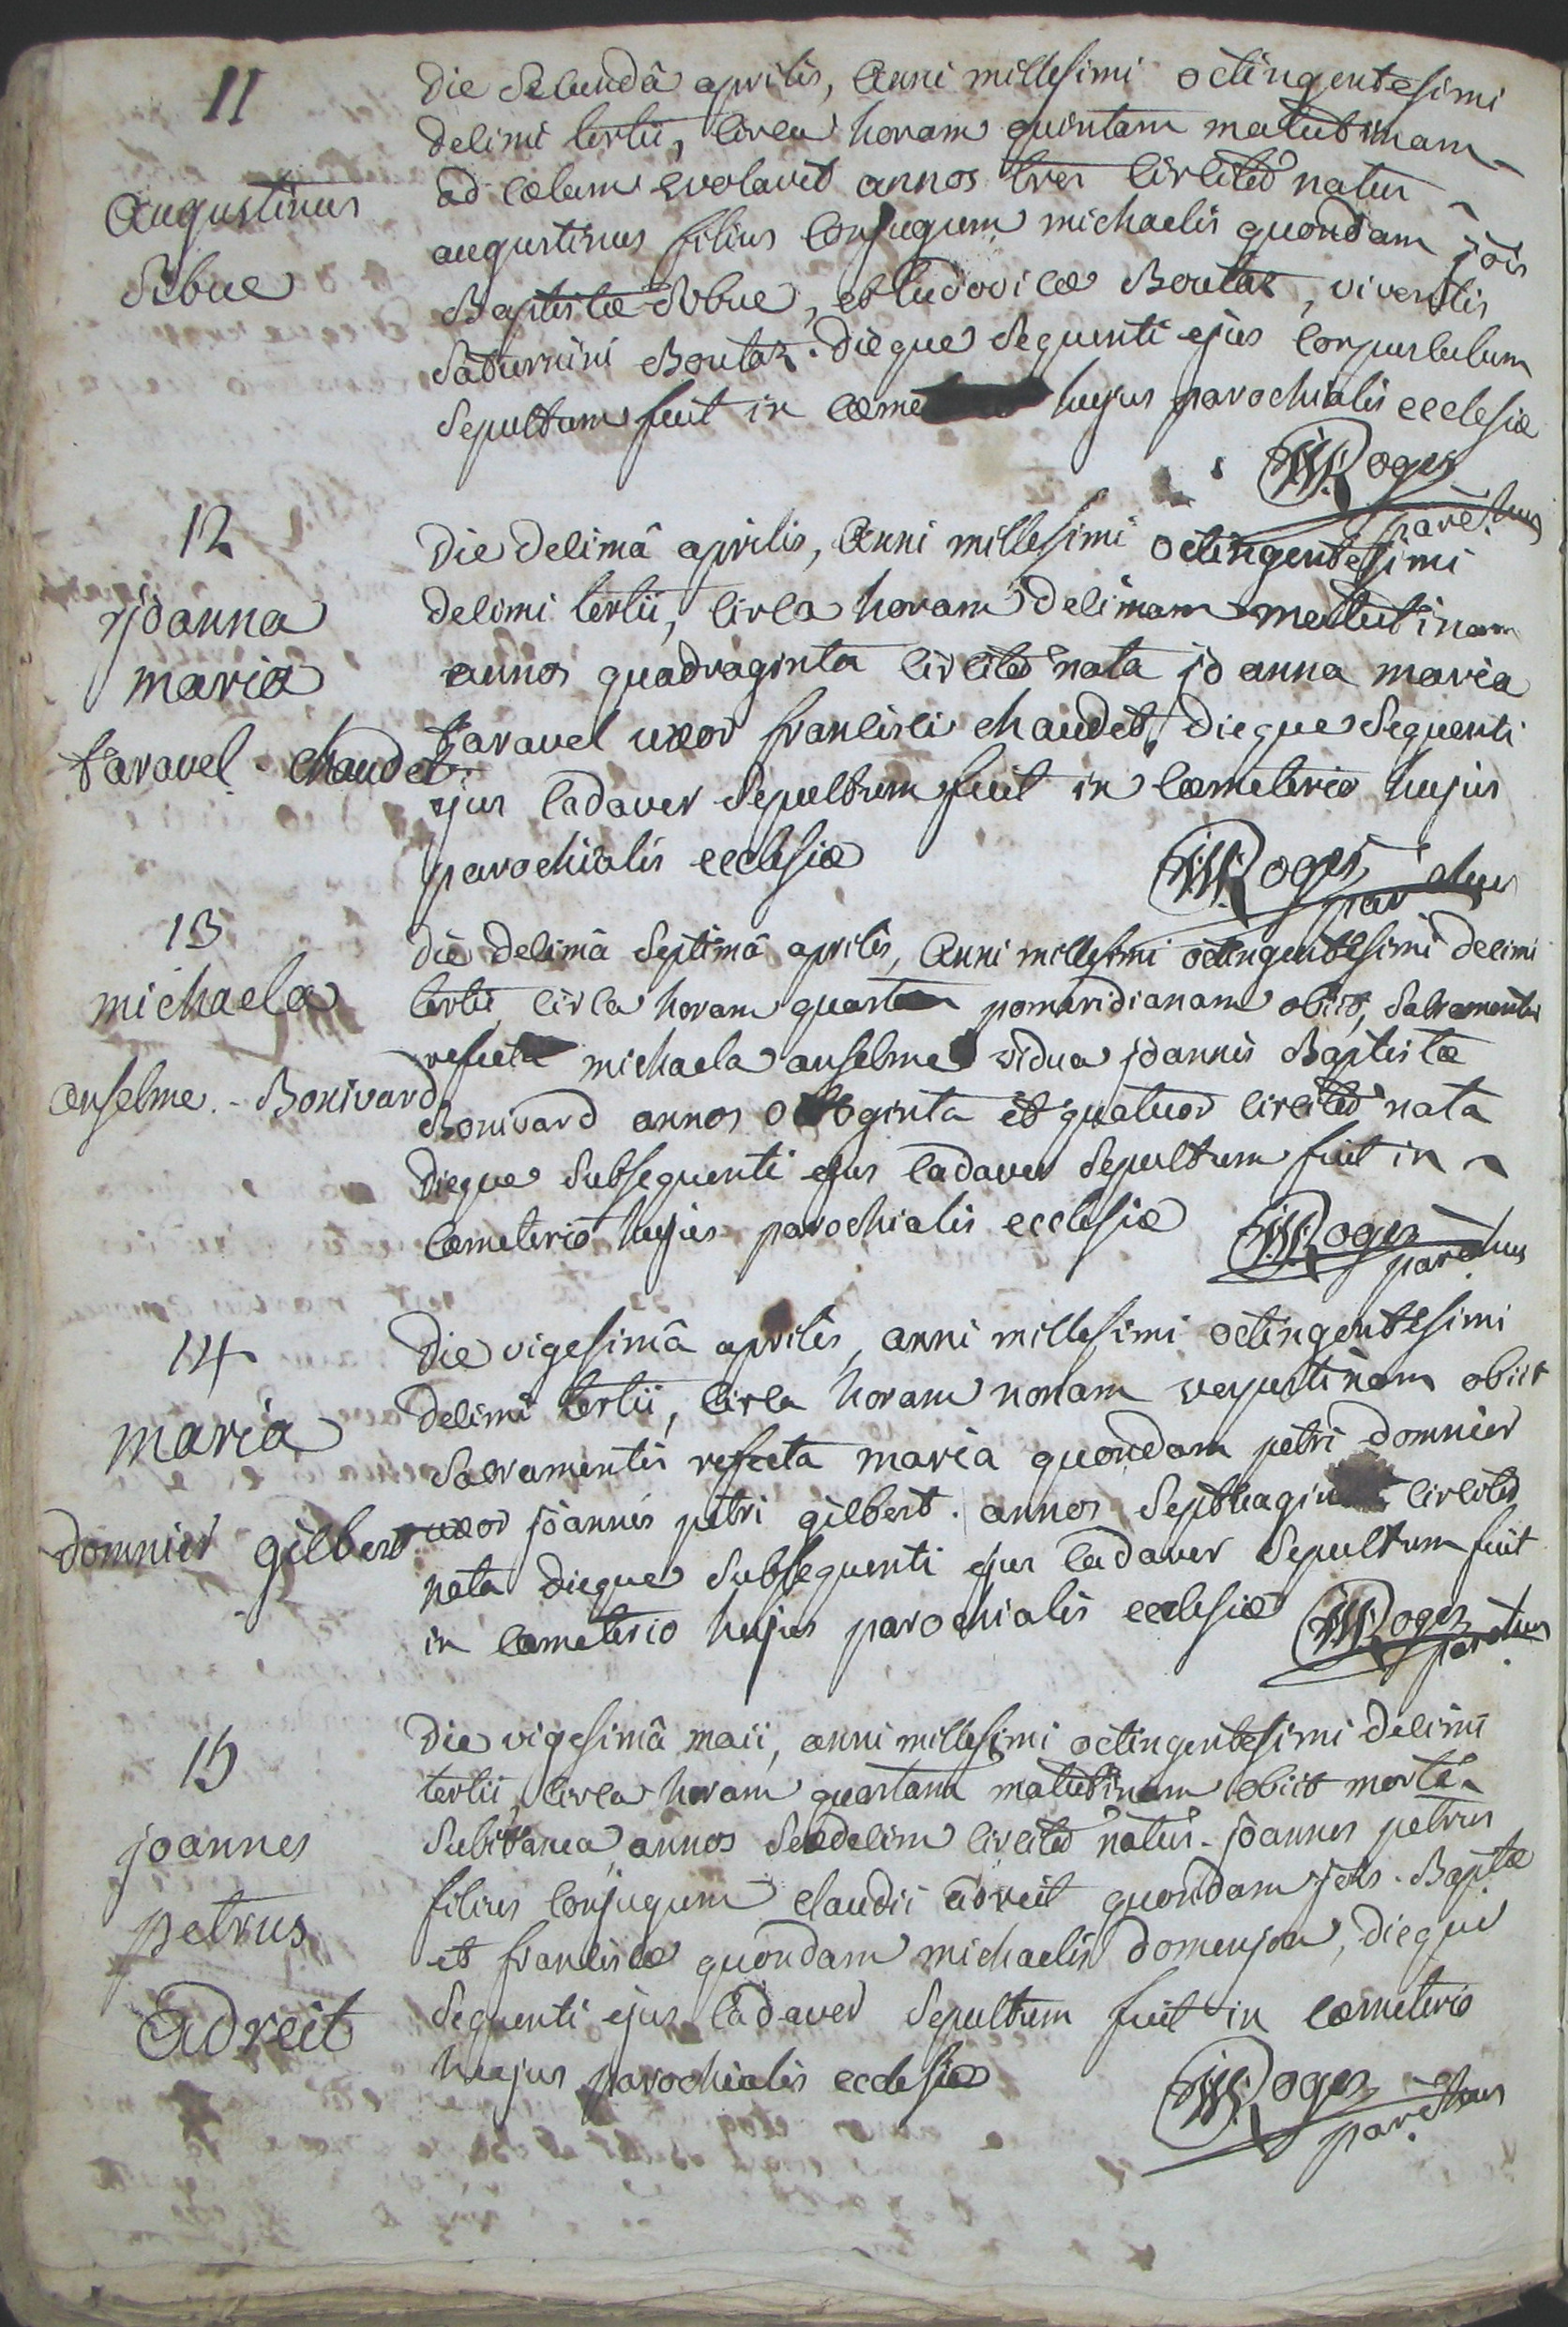 11
Augustinus
Sibue
Die Secundâ aprilis, Anni millesimi octingentesimi
decimi tertii, circa horam quintam matutinam
ad cœlum evolavit annos tres circiter natus
augustinus filius Conjugum michaelis quondam jois
Baptistæ Sibue, et Ludovicæ Boutaz, viventis
Saturnini Boutaz. dieque Sequenti ejus Corpusculum
Sepultum fuit in cœme hujus parochialis ecclesiæ
Roges
parochus
12
joanna
maria
taravel - Chaudet
Die decimâ aprilis, Anni millesimi octingentesimi
decimi tertii, circa horam decimam matutinam
annos quadraginta circiter nata joanna maria
taravel uxor francisci chaudet, dieque Sequenti
ejus Cadaver Sepultum fuit in Cœmeterio hujus
parochialis ecclesiæ
Roges
parochus
13
michaela
Anselme - Bonivard
Die decimâ Septimâ aprilis, Anni millesimi octingentesimi decimi
tertii, circa horam quartam pomeridianam obiit, Sacramentis
refecta michaela anselme vidua joannis Baptistæ
Bonivard annos octoginta et quatuor circiter nata
dieque Subsequenti ejus Cadaver Sepultum fuit in
Cœmeterio hujus parochialis ecclesiæ
Roges
parochus
14
maria
Domnier gilbert
Die vigesimâ aprilis, anni millesimi octingentesimi
decimi tertii, circa horam nonam vespertinam obiit
Sacramentis refecta maria quondam petri domnier
uxor joannis petri gilbert. annos Septuaginta circiter
nata dieque Subsequenti ejus Cadaver Sepultum fuit
in Cœmeterio hujus parochialis ecclesiæ
Roges
parochus
15
joannes
petrus
Adreit
Die vigesimâ maii, anni millesimi octingentesimi decimi
tertii, circa horam quartam matutinam obiit morte
Subitanea annos Sexdecim circiter natus - joannes petrus
filius Conjugum claudii adreit quondam jois - Baptæ
et franciscæ quondam michaelis domenjon, dieque
Sequenti ejus Cadaver Sepultum fuit in cœmeterio
hujus parochialis ecclesiæ
Roges
parochus